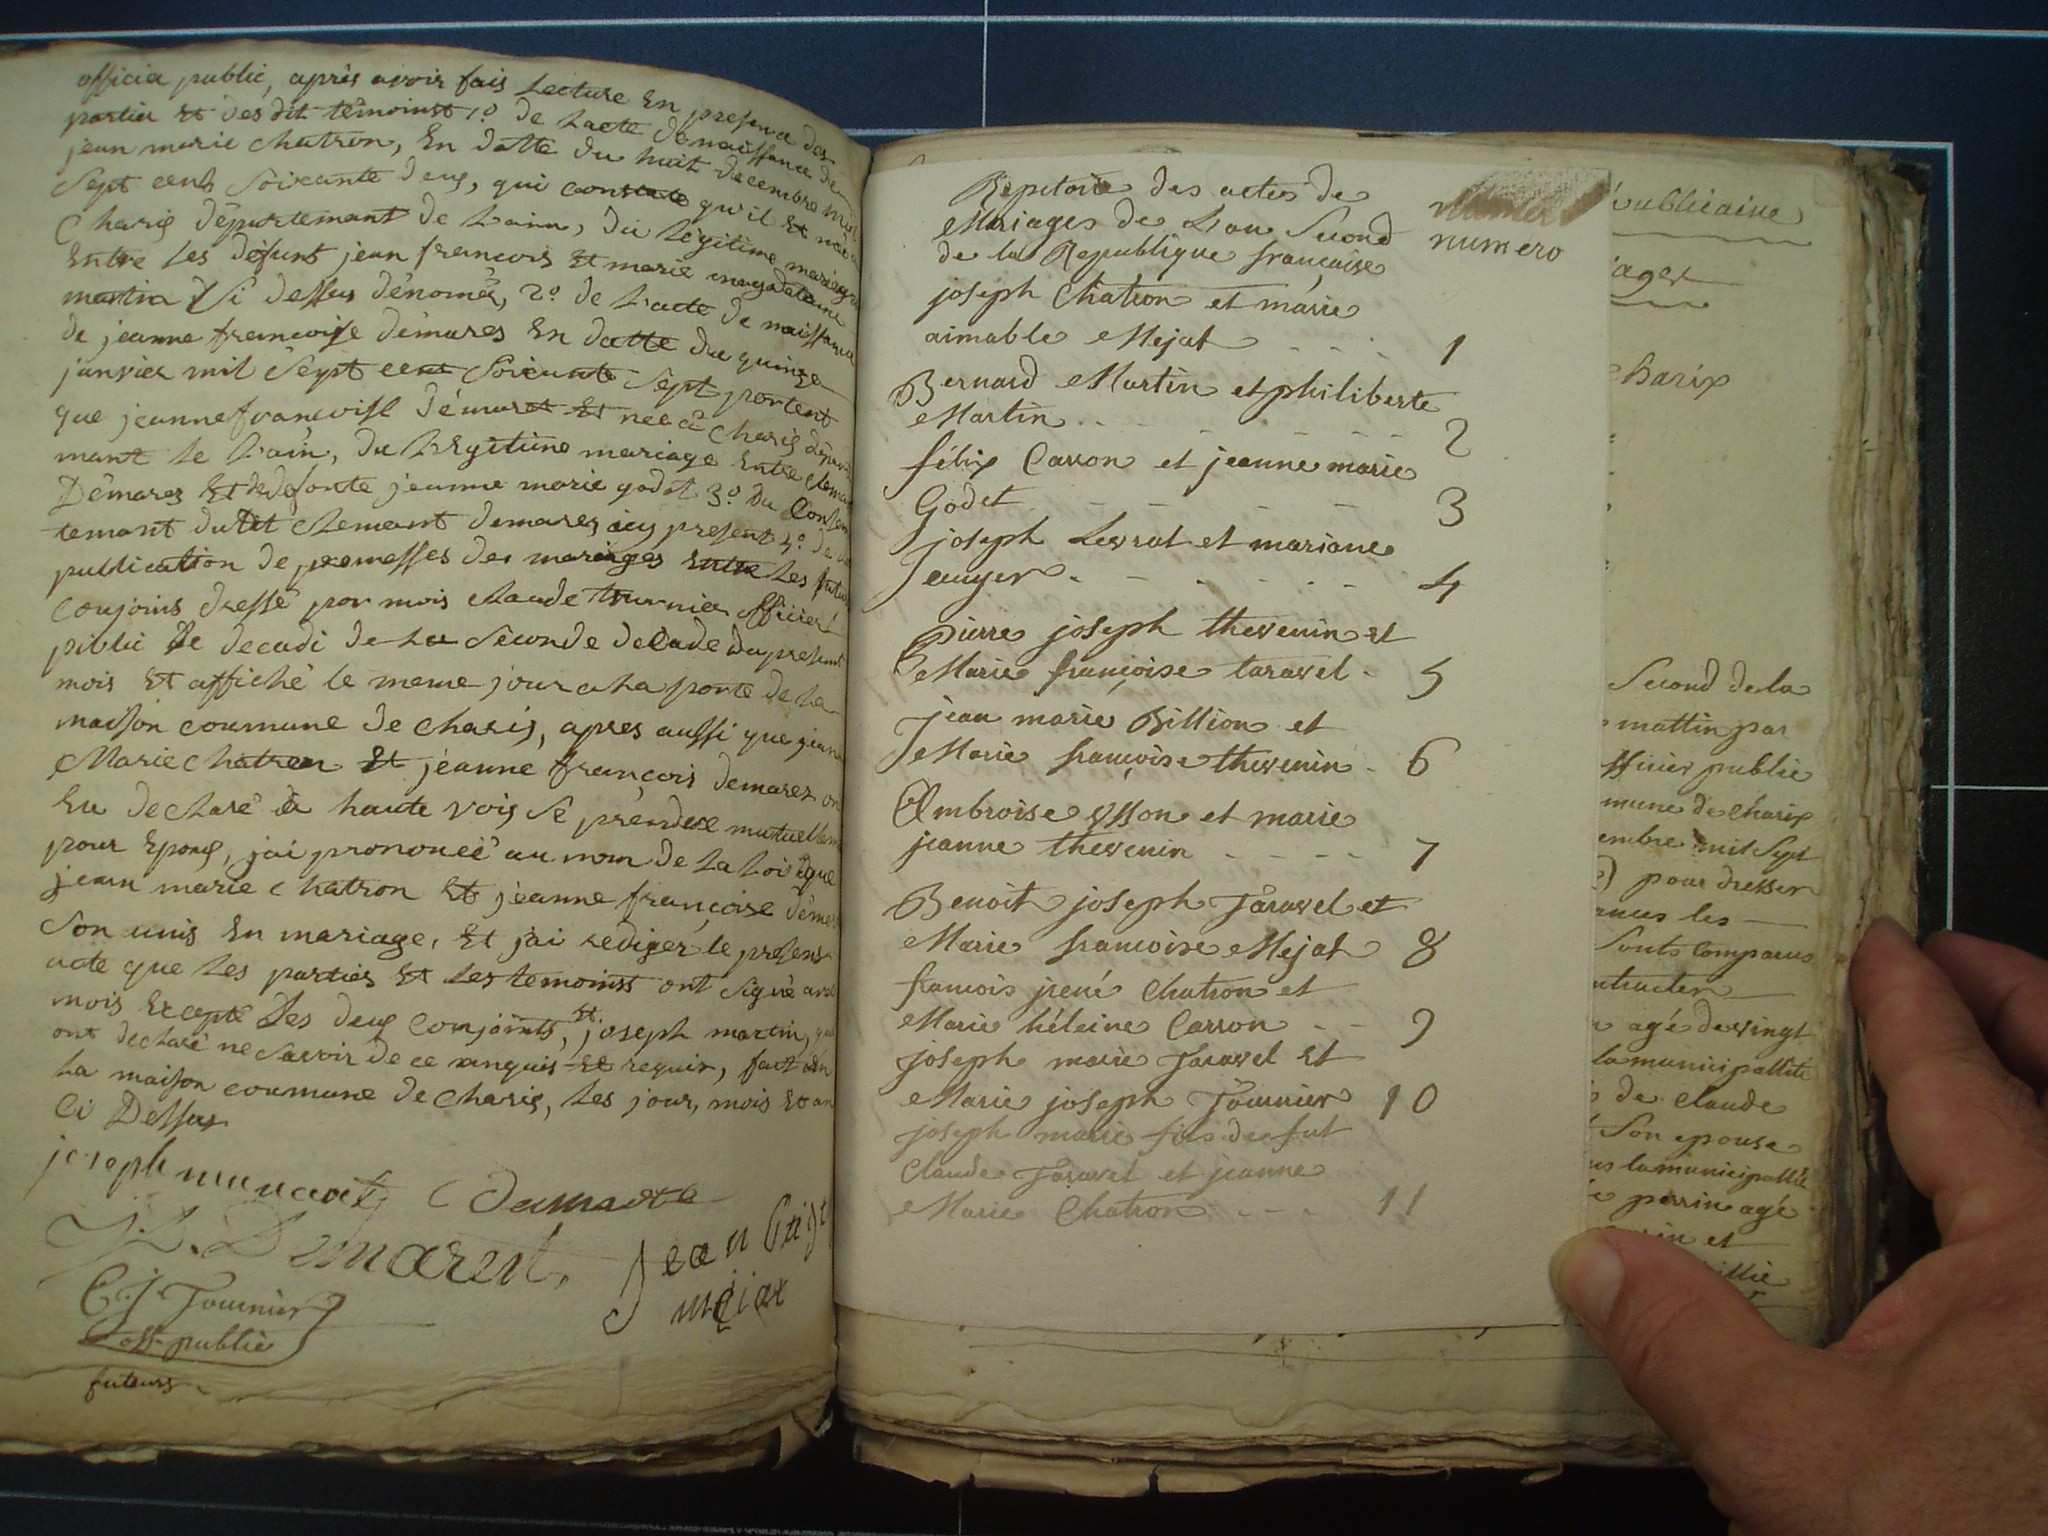 officier public, après avoir fais Lecture En presence des
parties Et des dit témoinst 1.° de Lacte de naissance de
jean marie chatron, En datte du huit decembre mil
Sept cents Soixante deux, qui constate qu'il Et née a
Charix département de Lain, du Légitime mariage
Entre Les défunt jean francois Et marie magdelaine
martin Si dessus dénomés, 2.° de Lacte de naissance
de jeanne francoise démares En datte du quinze
janvier mil Sept cent Soixante Sept portent
que jeanne francoise démaret Et née à Charix départe
mant de Lain, du Legitime mariage Entre Clemant
Démares Et de défonte jeanne marie godet 3.° du Consen
temant dudit Clemant demares icy present 4.° de la
publication de promesses des mariages Entre Les futur
Conjoins dressé par mois Claude Tournier officier
public le decadi de La Seconde decade du present
mois Et affiché le meme jour a La porte de La
maison coumune de Charix, apres aussi que jean
Marie chatron Et jéanne françois demarez on
Eu declaré a haute voix Se prendre mutuellem
pour Epoux, j'ai prononcé au nom de La Loi que
jean marie Chatron Et jéanne françoise déma
Son unis En mariage, Et j'ai rediger le presens
acte que Les parties Et Les temoinst ont Signé avec
mois Excepté Les deux Conjoints, Et joseph martin, qui
ont declaré ne Savoir de ce ranquis Et requir, fait En
La maison coumune de Charix, Les jour, mois Et an
Ci Dessus
joseph C Demare
Demarest, Jean
mejat
C. j. Tournier
off. public
futurs
Repetoire des actes de
Mariages de L'an Second numero
de la Republique françoise
joseph Chatron et marie
aimable Mejat 1
Bernard Martin et philiberte
Martin 2
félix Carron et jeanne marie
Godet 3
joseph Levrat et mariane
Jauger 4
pierre joseph thevenin et
Marie françoise taravel 5
jean marie Billion et
Marie françoise thevenin 6
Ambroise Ysson et marie
jeanne thevenin 7
Benoit joseph Taravel et
Marie francoise Mejat 8
francois Chatron et
Marie hélaine Carron 9
joseph marie Taravel Et
Marie joseph Tournier 10
joseph marie fils defut
Claude Taravel et jeanne
Marie Chatron 11
épublicaine
iages
Charix
Second de la
mattin par
fficier public
mune de Charix
embre mil Sept
pour dresser
nus les
Sonts Comparus
ntracter
agé de vingt
la municipallité
de Claude
Son epouse
la municipallité
perrin agé
rin et
illie